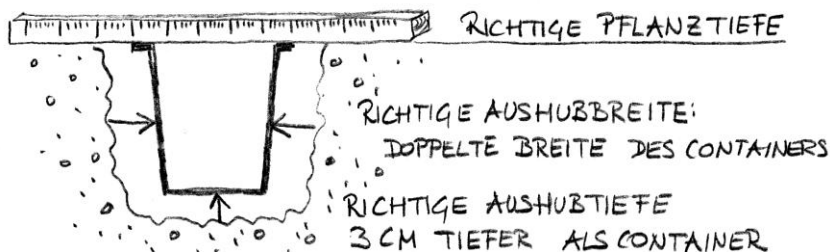 RICHTIGE PFLANZTIEFE
RICHTIGE AUSHUBBREITE:
DOPPELTE BREITE DES CONTAINERS
RICHTIGE AUSHUBTIEFE
3 CM TIEFER ALS CONTAINER